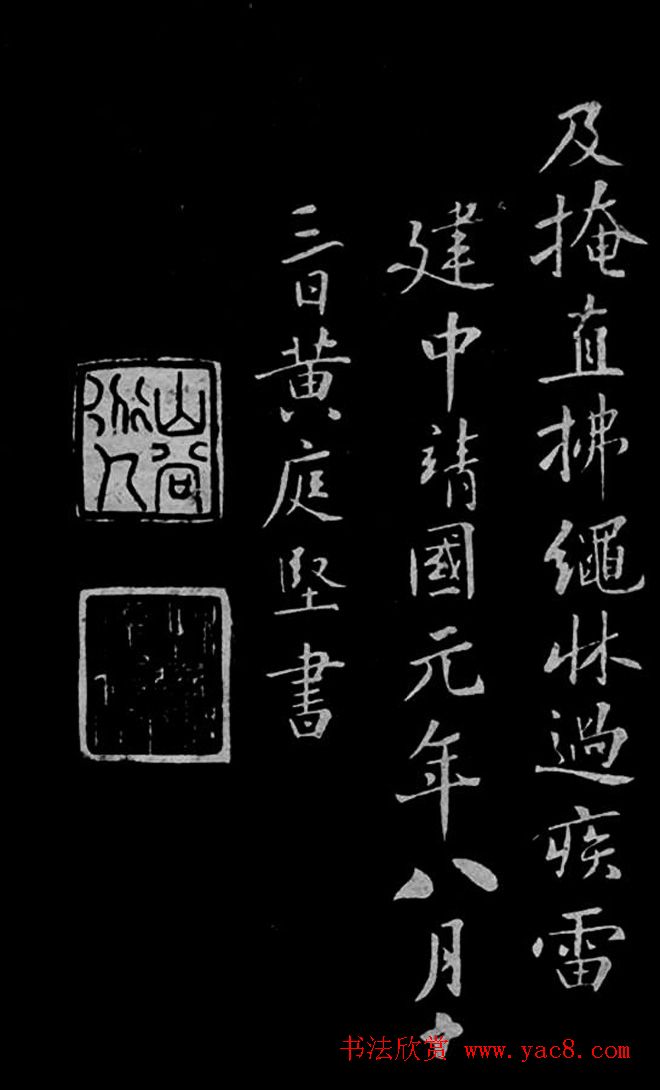 及掩直拂繩牀過疾雷
建中靖國元年八月十
三日黃庭堅書
山谷道人
书法欣赏 www.yac8.com